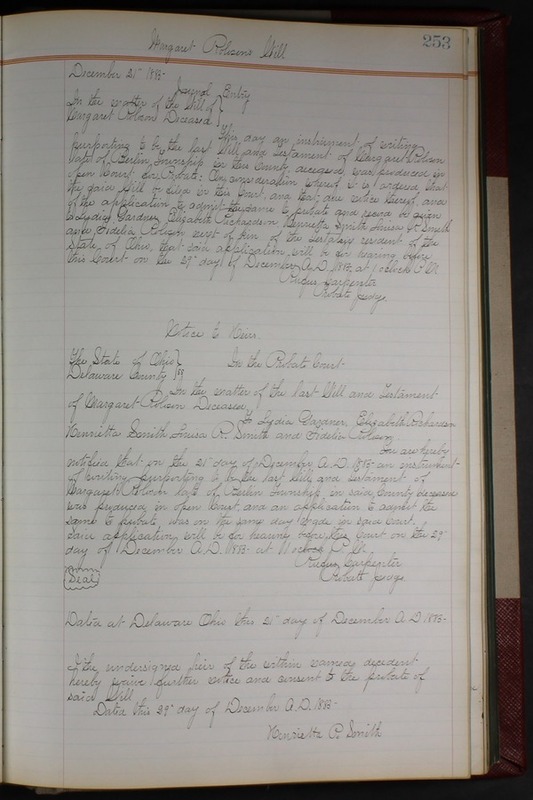 253
Margaret Robison's Will
December 21" 1893-
Journal Entry
In the matter of the Will of
Margaret Robison Deceased
This day an instrument of writing
purporting to be the last Will and Testament of Margaret Robison
late of Berlin Township in this County, deceased, was produced in
open Court for Probate: On consideration whereof it is ordered that
the said Will be filed in this Court, and that due notice thereof, and
of the application to admit the same to probate and record be given
to Lydia Gardner, Elizabeth Richardson Henrietta Smith Louisa R. Smith
and Fidelia Robison next of kin of the testatrix resident of the
State of Ohio, that said application will be for hearing before
this Court on the 29" day of December A.D. 1893, at 1 oclock P.M.
Rufus Carpenter
Probate Judge.
Notice to Heirs.
The State of Ohio
Delaware County } SS
In the Probate Court
In the matter of the last Will and Testament
of Margaret Robison Deceased,
To Lydia Gardner, Elizabeth Richardson
Henrietta Smith Louisa R. Smith and Fidelia Robison
You are hereby
notified that on the 21" day of December A.D. 1893- an instrument
of writing purporting to be the last Will and testament of
Margaret Robison late of Berlin Township in said County deceased
was produced in open Court and an application to admit the
same to probate, was on the same day made in said Court.
Said application will be for hearing before this Court on the 29"
day of December A.D. 1893- at 1 oclock P.M.
Rufus Carpenter
Probate Judge
Seal
Dated at Delaware Ohio this 21" day of December A.D 1893-
I the undersigned heir of the within named decedent
hereby waive further notice and consent to the probate of
said Will.
Dated this 29" day of December A.D. 1893-
Henrietta R. Smith